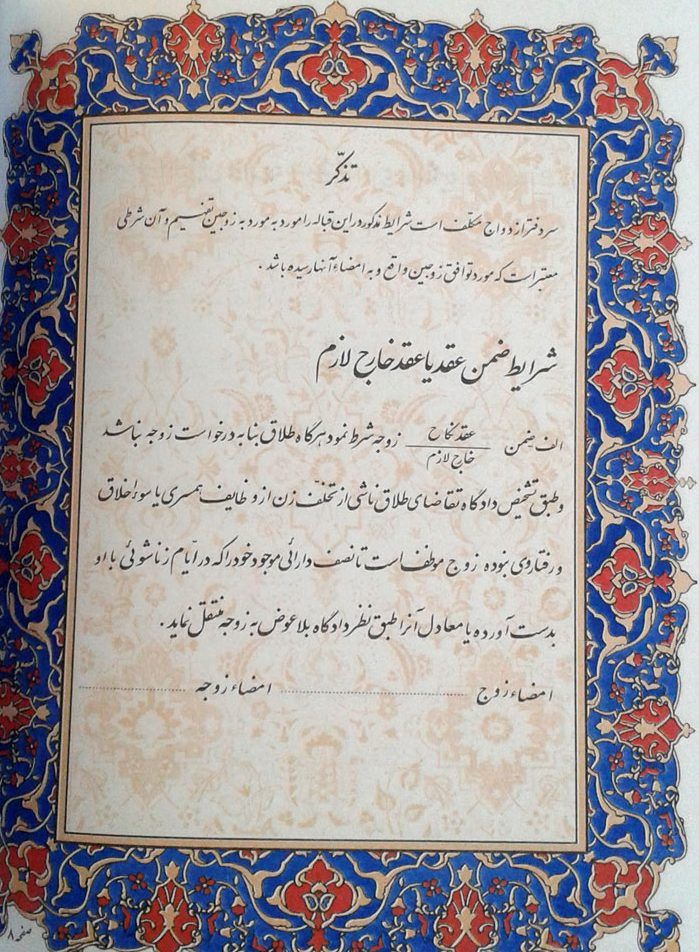 تذکّر
سردفتر ازدواج مکلّف است شرایط مذکور در این قباله را مورد به مورد به زوجین تفهیم و آن شرطی
معتبر است که مورد توافق زوجین واقع و به امضاء آنها رسیده باشد.
شرایط ضمن عقد یا عقد خارج لازم
الف ضمن عقد نکاح / خارج لازم زوجه شرط نمود هرگاه طلاق بنا به درخواست زوجه نباشد
و طبق تشخیص دادگاه تقاضای طلاق ناشی از تخلّف زن از وظایف همسری یا سوء اخلاق
و رفتار وی نبوده زوج موظف است تا نصف دارائی موجود خود را که در ایّام زناشوئی با او
بدست آورده یا معادل آنرا طبق نظر دادگاه بلاعوض به زوجه منتقل نماید.
امضاء زوج .......... امضاء زوجه ..........
صفحه ۸